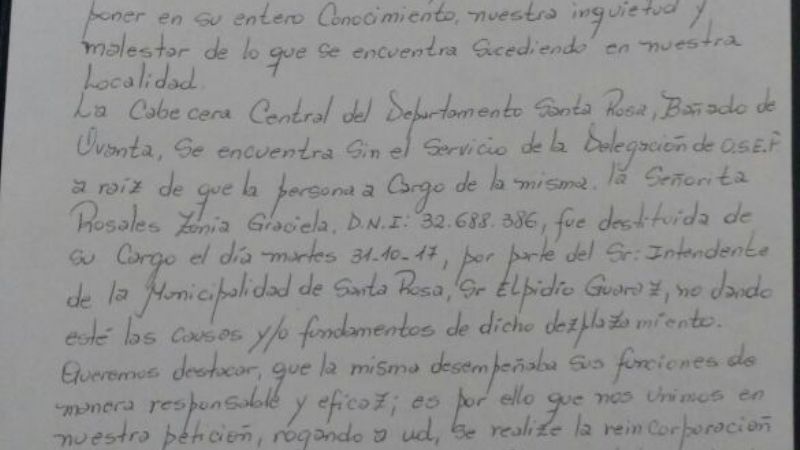 poner en su entero Conocimiento, nuestra inquietud y
malestar de lo que se encuentra Sucediendo en nuestra
Localidad.
La Cabecera Central del Departamento Santa Rosa, Bañado de
Ovanta, Se encuentra Sin el Servicio de la Delegación de O.S.E.P
a raiz de que la persona a Cargo de la misma, la Señorita
Rosales Zonia Graciela, D.N.I: 32.688.386, fue destituida de
su Cargo el día martes 31-10-17, por parte del Sr: Intendente
de la Municipalidad de Santa Rosa, Sr Elpidio Guaraz, no dando
esté las causas y/o fundamentos de dicho dezplazamiento.
Queremos destacar, que la misma desempeñaba sus funciones de
manera responsable y eficaz; es por ello que nos unimos en
nuestra petición, rogando a ud, se realize la reincorporación